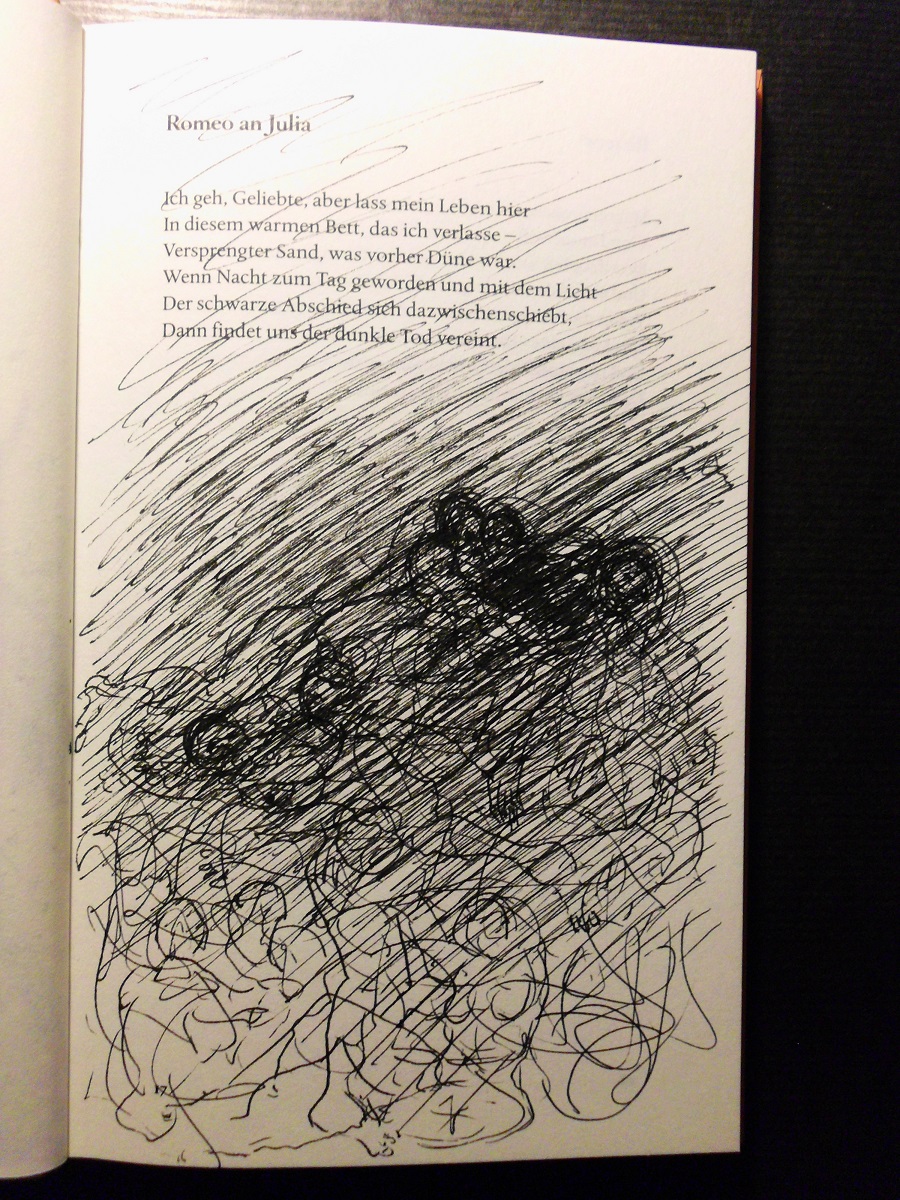 Romeo an Julia
Ich geh, Geliebte, aber lass mein Leben hier
In diesem warmen Bett, das ich verlasse –
Versprengter Sand, was vorher Düne war.
Wenn Nacht zum Tag geworden und mit dem Licht
Der schwarze Abschied sich dazwischenschiebt,
Dann findet uns der dunkle Tod vereint.